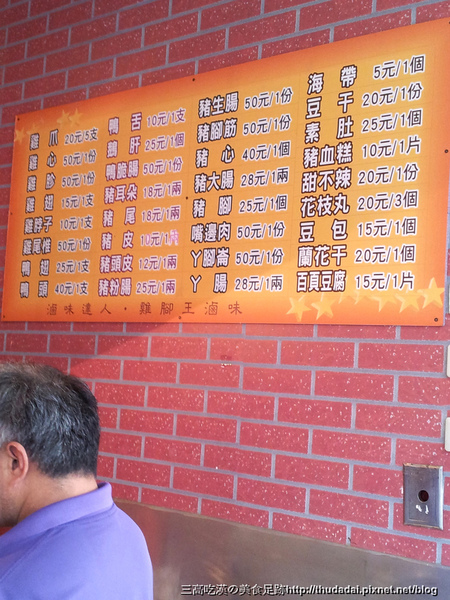 雞爪 20元/5支
雞心 50元/1份
雞胗 50元/1份
雞翅 15元/1支
雞脖子 10元/1支
雞尾椎 50元/1份
鴨翅 25元/1支
鴨頭 40元/1支
鴨舌 10元/1支
鵝肝 25元/1個
鴨脆腸 50元/1份
豬耳朵 18元/1兩
豬尾 18元/1兩
豬皮 10元/1片
豬頭皮 12元/1兩
豬粉腸 25元/1兩
豬生腸 50元/1份
豬腳筋 50元/1份
豬心 40元/1個
豬大腸 28元/1兩
豬腳 25元/1個
嘴邊肉 50元/1份
丫腳崙 50元/1份
丫腸 28元/1兩
海帶 5元/1個
豆干 20元/1份
素肚 25元/1個
豬血糕 10元/1片
甜不辣 20元/1份
花枝丸 20元/3個
豆包 15元/1個
蘭花干 20元/1個
百頁豆腐 15元/1片
滷味達人・雞腳王滷味
三高吃漢の美食足跡http://thudadai.pixnet.net/blog